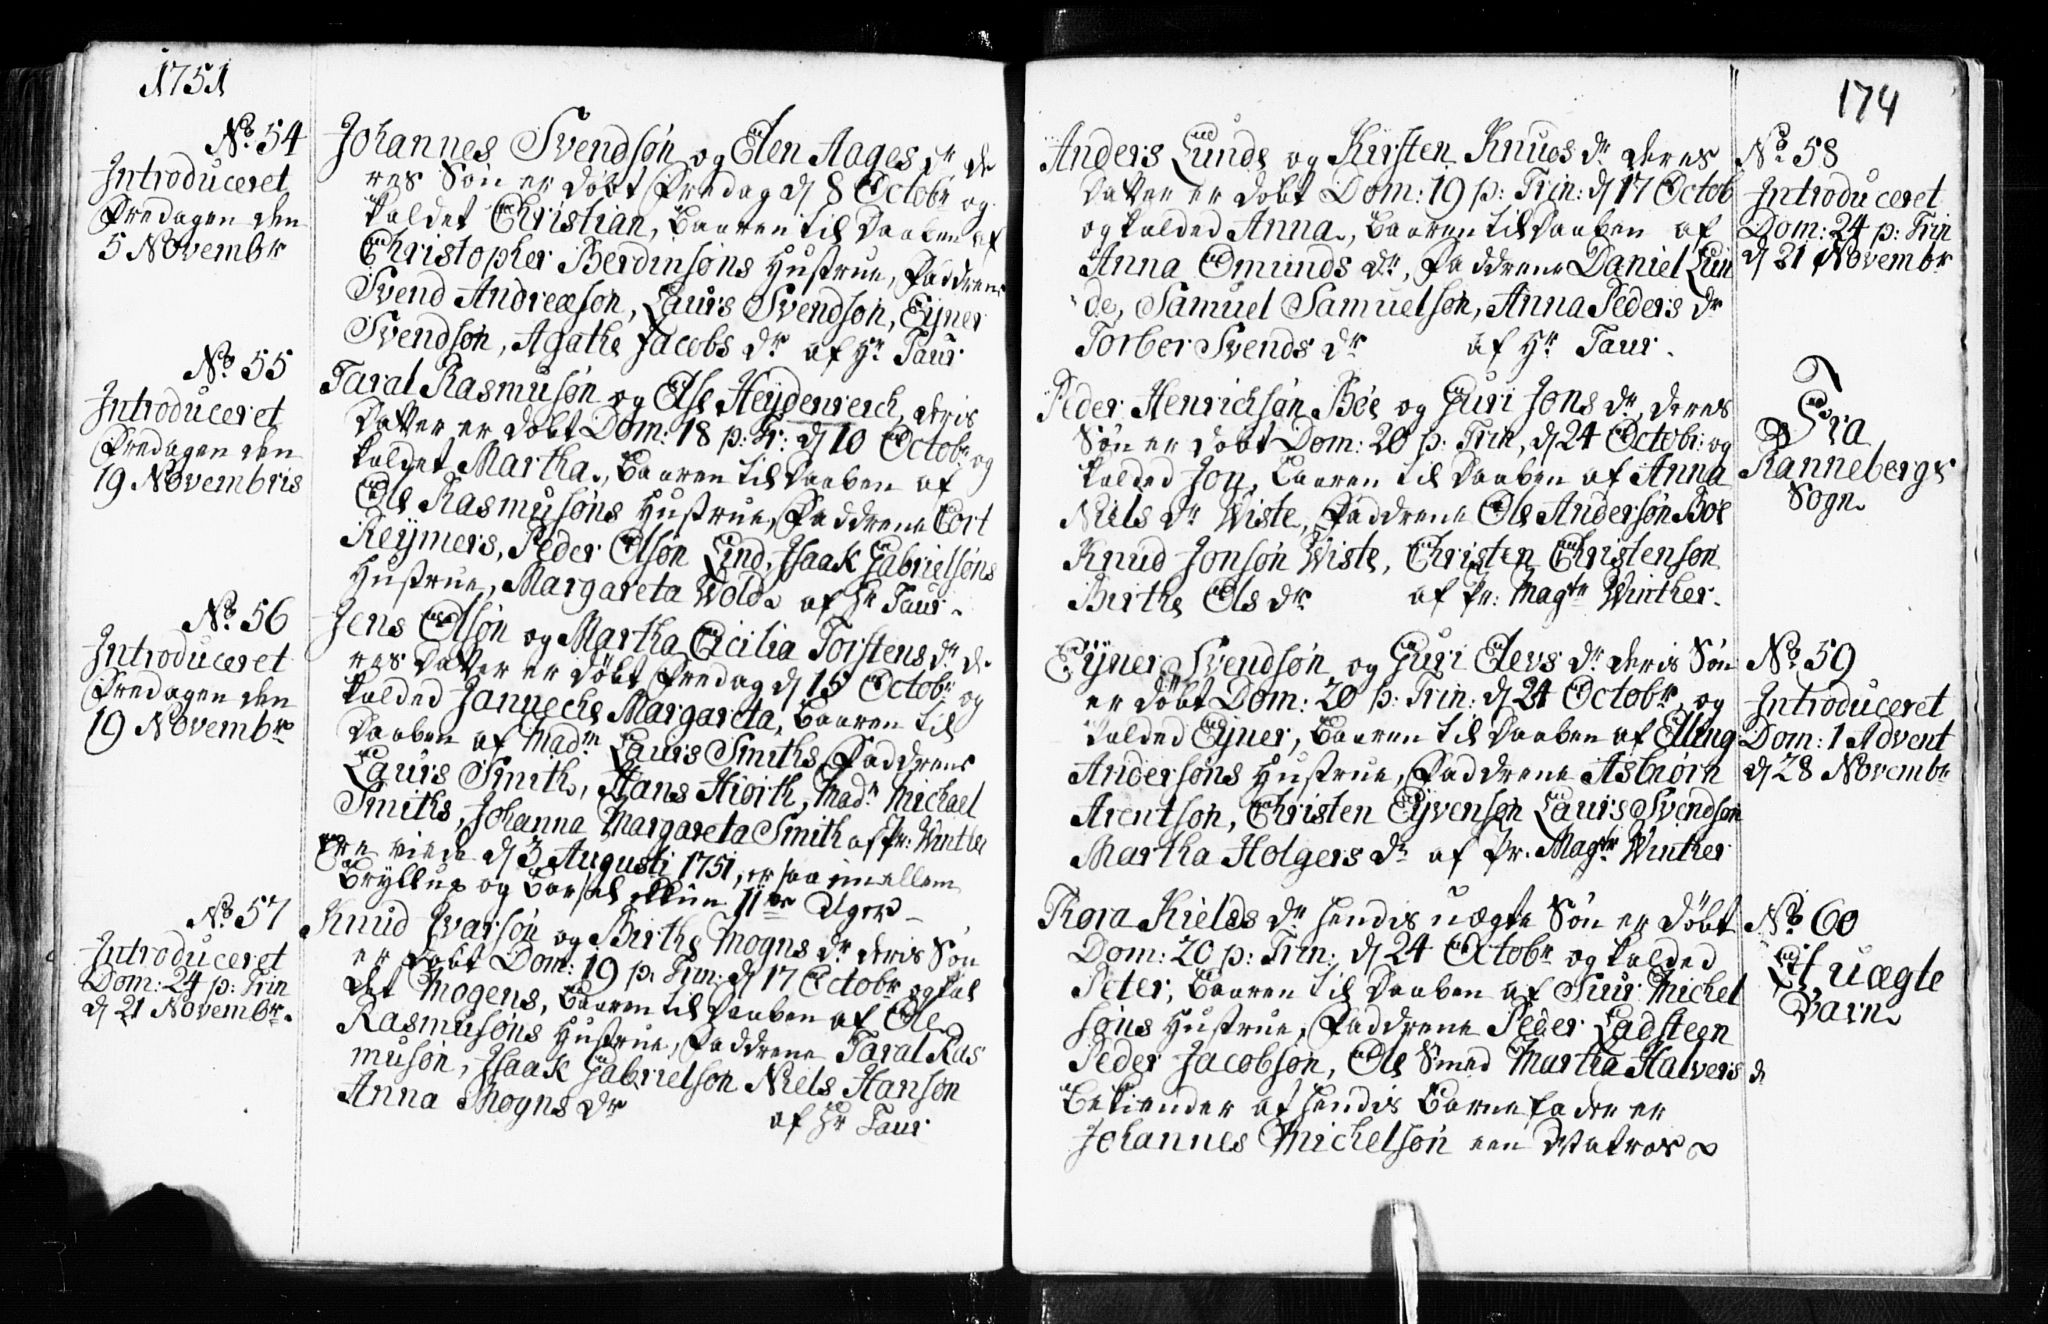 1751
No. 54
Introduceret
Fredagen den
5 Novembr
Johannes Svendsøn og Elen Aages dr de
res Søn er døbt Fredag d 8 Octobr og
kaldet Christian, Baaren til Daaben af
Christopher Berdinsøns Hustrue, Faddrene
Svend Andreæsøn, Laurs Svendsøn, Ejner
Svendsøn, Agathe Jacobs dr af Hr Taur
No. 55
Introduceret
Fredagen den
19 Novembris
Taral Rasmusøn og Else Heydenreich, deris
Datter er døbt Dom: 18 p: Tr: d 10 Octobr og
kaldet Martha, Baaren til Daaben af
Ole Rasmusøns Hustrue, Faddrene Cort
Reymers, Peder Olsøn Lind, Isaak Gabrielsøns
Hustrue, Margareta Wold af Hr Taur.
No. 56
Introduceret
Fredagen den
19 Novembr
Jens Olsøn og Martha Cicilia Torstens dr de
res Datter er døbt Fredag d 15 Octobr og
kalded Janneche Margareta, Baaren til
Daaben af Madm Laurs Smiths, Faddrene
Laurs Smith, Hans Hiorth, Madm Michael
Smiths, Johanna Margareta Smith af Pr: Winther
Ere viede d 3 Augusti 1751, er saa imellem
Bryllup og Barsel ikkun 11 Uger
No. 57
Introduceret
Dom: 24 p: Trin
d 21 Novembr.
Knud Ivarsøn og Birthe Mogns dr deris Søn
er døbt Dom: 19 p. Trin: d 17 Octobr og kal
det Mogens, Baaren til Daaben af Ole
Rasmusøns Hustrue, Faddrene Taral Ras
musøn, Isaak Gabrielsøn Niels Hansøn
Anna Mogns dr
af Hr Taur
174
Anders Lunde og Kirsten Knuds dr deres
Datter er døbt Dom: 19 p: Trin: d 17 Octob
og kalded Anna, Baaren til Daaben af
Anna Omunds dr, Faddrene Daniel Lun
de, Samuel Samuelsøn, Anna Peders dr
Torber Svends dr af Hr Taur.
No. 58
Introduceret
Dom: 24 p: Trin
d 21 Novembr
Peder Henrichsøn Böe og Guri Jons dr, deres
Søn er døbt Dom: 20 p: Trin, d 24 Octobr: og
kalded Jon, Baaren til Daaben af Anna
Niels dr Viste, Faddrene Ole Andersøn Böe
Knud Jonsøn Viste, Christen Christensøn
Birthe Ols dr af Pr: Magtr Winther.
Fra
Ranneberge
Sogn
Ejner Svendsøn og Guri Elevs dr deris Søn
er døbt Dom: 20 p: Trin: d 24 Octobr, og
kalded Ejner, Baaren til Daaben af Elling
Andersøns Hustrue, Faddrene Asbiørn
Arentsøn, Christen Ejvensøn Laurs Svendsøn
Martha Holgers dr af Pr. Magtr Winther
No. 59
Introduceret
Dom: 1 Advent
d 28 Novembr
Thora Kields dr hendis uægte Søn er døbt
Dom: 20 p: Trin: d 24 Octobr og kalded
Peter, Baaren til Daaben af Siur Michel
søns Hustrue, Faddrene Peder Ladsteen
Peder Jacobsøn, Ole Smed Martha Halvers d
Bekiender at hendis Barnefader er
Johannes Michelsøn een Matros
No. 60
Et uægte
Barn